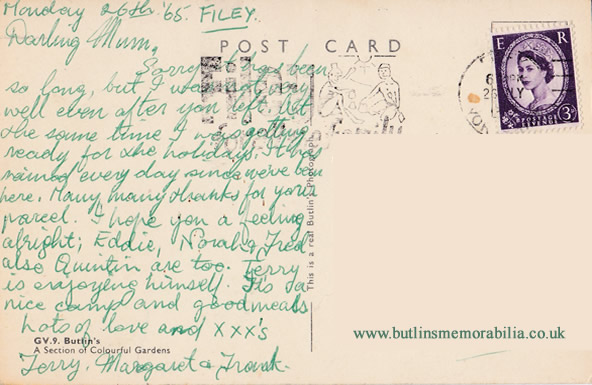 Monday 26th '65. FILEY.
Darling Mum,
POST CARD
Sorry I had been
so long, but I was not very
well even after you left, but
the same time I was getting
ready for the holidays, It has
rained every day since we've been
here. Many many thanks for your
parcel. I hope you a feeling
alright; Eddie, Norah & Fred
also Quintin are too. Terry
is enjoying himself. Its a
nice camp and good meals
Lots of love and XXX's
Terry, Margaret & Frank.
GV.9. Butlin's
A Section of Colourful Gardens
This is a real Butlin's Photograph
E R
POSTAGE
REVENUE
3D
www.butlinsmemorabilia.co.uk